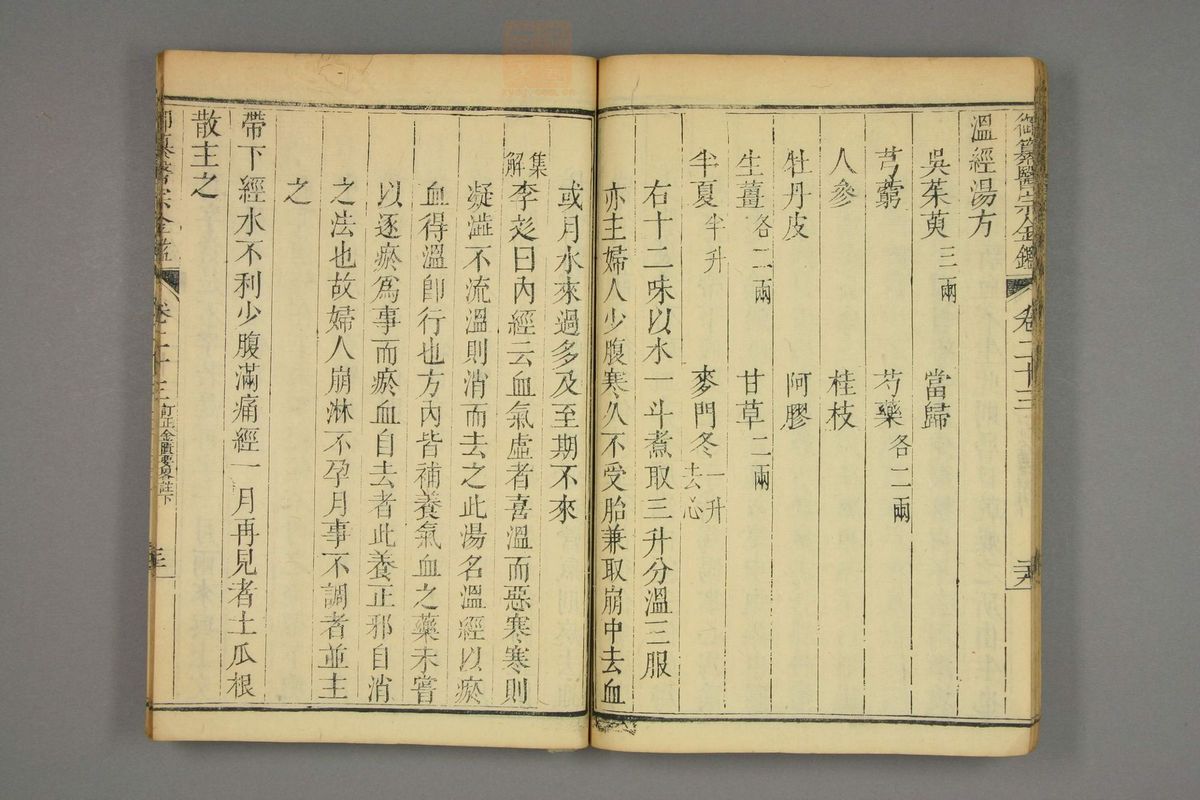 御纂醫宗金鑑 卷二十三
溫經湯方
吳茱萸三兩 當歸
芎藭 芍藥各二兩
人參 桂枝
牡丹皮 阿膠
生薑各二兩 甘草二兩
半夏半升 麥門冬一升去心
右十二味以水一斗煮取三升分溫三服
亦主婦人少腹寒久不受胎兼取崩中去血
或月水來過多及至期不來
集解李彣曰內經云血氣虛者喜溫而惡寒寒則
凝澁不流溫則消而去之此湯名溫經以瘀
血得溫卽行也方內皆補養氣血之藥未嘗
以逐瘀爲事而瘀血自去者此養正邪自消
之法也故婦人崩淋不孕月事不調者並主
之
帶下經水不利少腹滿痛經一月再見者土瓜根
散主之
御纂醫宗金鑑 卷二十三 訂正金匱要畧註下